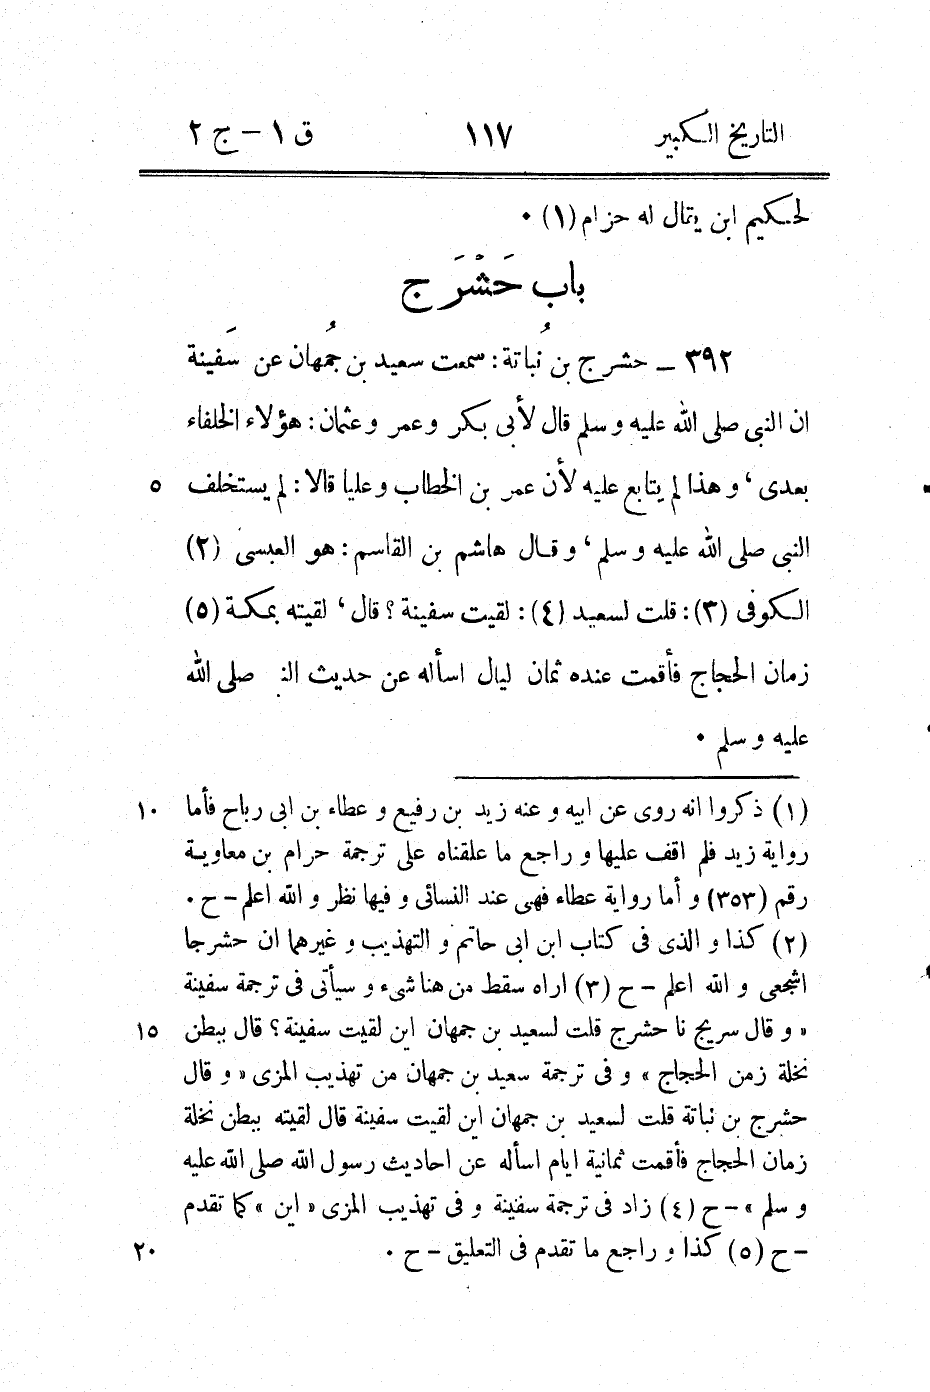 التاريخ الكبير ١١٧ ق ١ - ج ٢
لحكيم ابن يقال له حزام (١) ٠
باب حَشْرَج
٣٩٢ - حشرج بن نُباتة: سمعت سعيد بن جُمهان عن سَفينة
ان النبي صلى الله عليه و سلم قال لأبى بكر و عمر و عثمان: هؤلاء الخلفاء
بعدى، و هذا لم يتابع عليه لأن عمر بن الخطاب و عليا قالا: لم يستخلف ٥
النبى صلى الله عليه و سلم، و قال هاشم بن القاسم: هو العبسى (٢)
الكوفى (٣): قلت لسعيد (٤): لقيت سفينة؟ قال، لقيته بمكة (٥)
زمان الحجاج فأقمت عنده ثمان ليال اسأله عن حديث صلى الله
عليه و سلم ٠
(١) ذكروا انه روى عن ابيه و عنه زيد بن رفيع و عطاء بن ابى رباح فأما ١٠
رواية زيد فلم اقف عليها و راجع ما علقناه على ترجمة حرام بن معاوية
رقم (٣٥٣) و أما رواية عطاء فهى عند النسائى و فيها نظر و الله اعلم - ح ٠
(٢) كذا و الذى فى كتاب ابن ابى حاتم و التهذيب و غيرهما ان حشرجا
اشجعى و الله اعلم - ح (٣) اراه سقط من هنا شىء و سيأتى فى ترجمة سفينة
« و قال سريج نا حشرج قلت لسعيد بن جمهان اين لقيت سفينة؟ قال ببطن ١٥
نخلة زمن الحجاج » و فى ترجمة سعيد بن جمهان من تهذيب المزى « و قال
حشرج بن نباتة قلت لسعيد بن جمهان اين لقيت سفينة قال لقيته ببطن نخلة
زمان الحجاج فأقمت ثمانية ايام اسأله عن احاديث رسول الله صلى الله عليه
و سلم » - ح (٤) زاد فى ترجمة سفينة و فى تهذيب المزى « اين » كما تقدم
- ح (٥) كذا و راجع ما تقدم فى التعليق - ح ٠ ٢٠